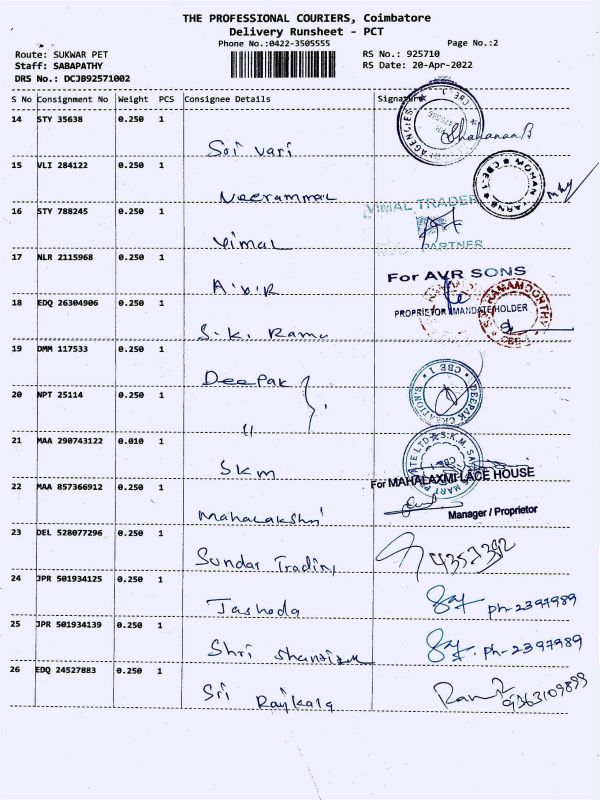 THE PROFESSIONAL COURIERS, Coimbatore
Delivery Runsheet - PCT
Phone No.:0422-3505555 Page No.:2
Route: SUKWAR PET RS No.: 925710
Staff: SABAPATHY RS Date: 20-Apr-2022
DRS No.: DCJB92571002
S No Consignment No Weight PCS Consignee Details Signature
14 STY 35638 0.250 1
Sri Vari
CBE.1 AGENCIES
15 VLI 284122 0.250 1
Neerammal
MOHAN YARNS CBE-1
16 STY 788245 0.250 1
Vimal
VIMAL TRADER
PARTNER
17 NLR 2115968 0.250 1
A.V.R
For AVR SONS
PROPRIETOR / MANDATE HOLDER
18 EDQ 26304906 0.250 1
S.K. Ramu
19 DMM 117533 0.250 1
Deepak
20 NPT 25114 0.250 1
"
DEEPAK CREATIONS CBE 1
21 MAA 290743122 0.010 1
SKM
22 MAA 857366912 0.250 1
Mahalakshmi
For MAHALAXMI LACE HOUSE
Manager / Proprietor
23 DEL 528077296 0.250 1
Sundar Trading
24 JPR 501934125 0.250 1
Jashoda
ph-2397989
25 JPR 501934139 0.250 1
Shri
ph-2397989
26 EDQ 24527883 0.250 1
Sri Rajkala
9363109899